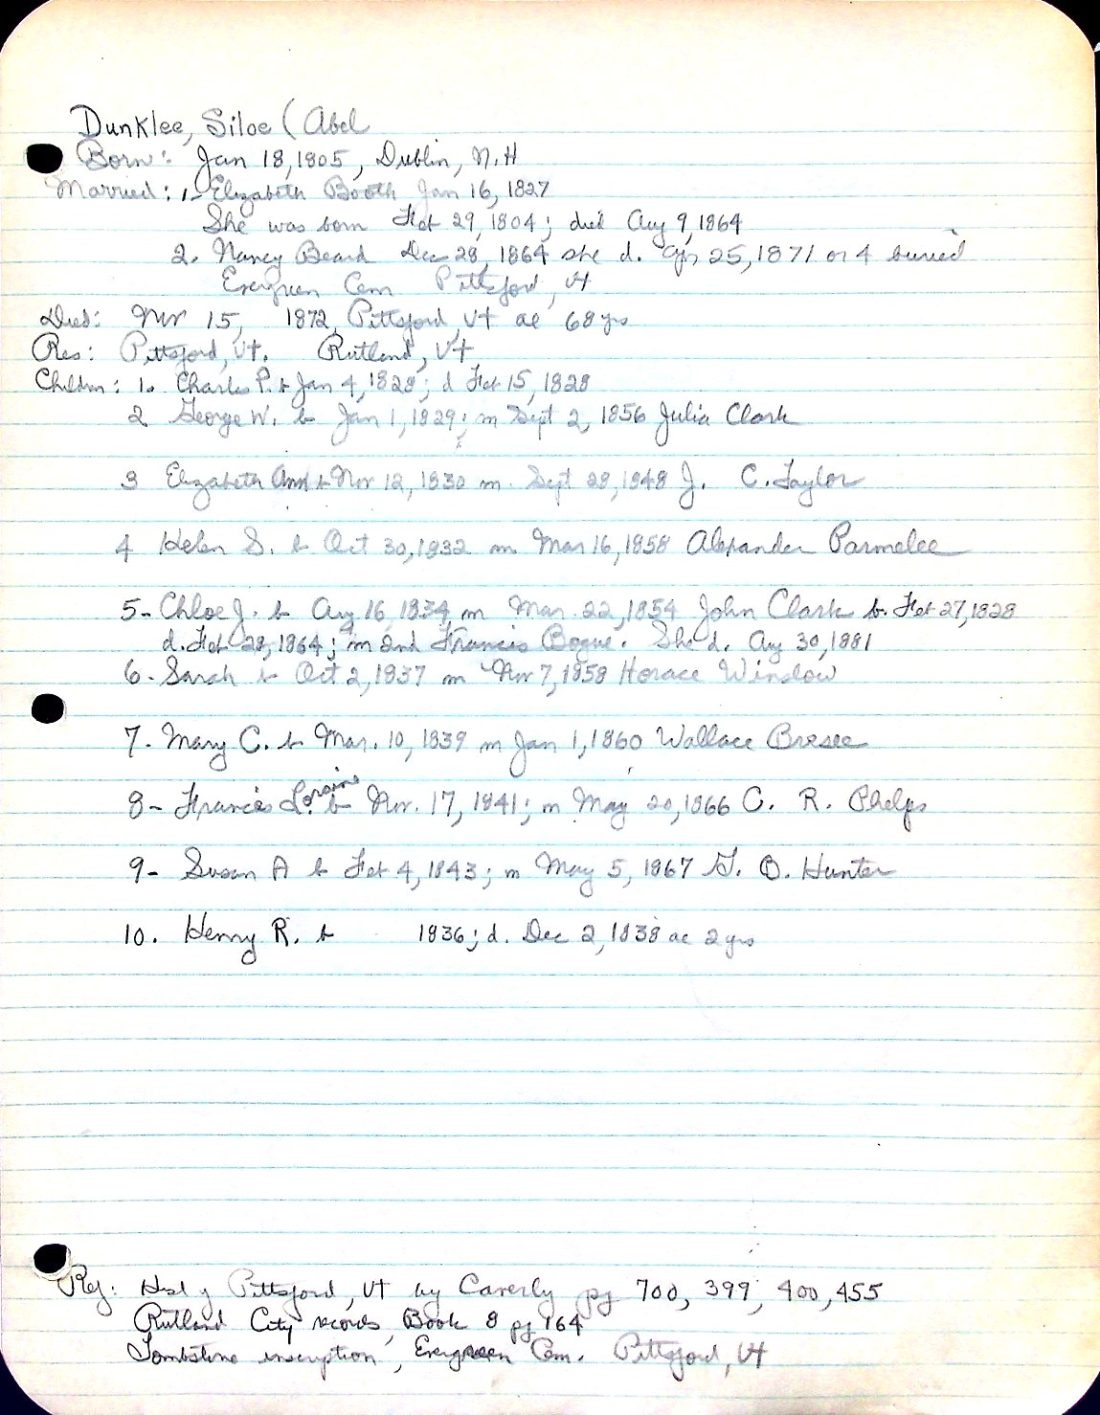 Dunklee, Siloe (Abel
Born: Jan 18, 1805, Dublin, N.H
Married: 1. Elizabeth Booth Jan 16, 1827
She was born Feb 29, 1804; died Aug 9, 1864
2. Nancy Beard Dec 28, 1864 she d. Apr 25, 1871 or 4 buried
Evergreen Cem Pittsford, Vt
Died: Nov 15, 1872, Pittsford, Vt ae 68 yrs
Res: Pittsford, Vt. Rutland, Vt
Children: 1. Charles P. b Jan 4, 1828; d Feb 15, 1828
2 George W. b Jan 1, 1829; m Sept 2, 1856 Julia Clark
3 Elizabeth Ann b Nov 12, 1830 m Sept 28, 1848 J. C. Taylor
4 Helen S. b Oct 30, 1832 m Mar 16, 1858 Alexander Parmelee
5- Chloe J. b Aug 16, 1834, m Mar. 22, 1854 John Clark b. Feb 27, 1828
d. Feb 28, 1864; m 2nd Francis Bogue. She d. Aug 30, 1881
6- Sarah b Oct 2, 1837 m Nov 7, 1858 Horace Winslow
7- Mary C. b Mar. 10, 1839 m Jan 1, 1860 Wallace Bresee
8- Francis Loraine b Nov. 17, 1841; m May 20, 1866 C. R. Phelps
9- Susan A b Feb 4, 1843; m May 5, 1867 G. O. Hunter
10. Henry R. b 1836; d. Dec 2, 1838 ae 2 yrs
Ref: Hist of Pittsford, Vt by Caverly pg 700, 399, 400, 455
Rutland City records, Book 8 pg 164
Tombstone inscription, Evergreen Cem. Pittsford, Vt